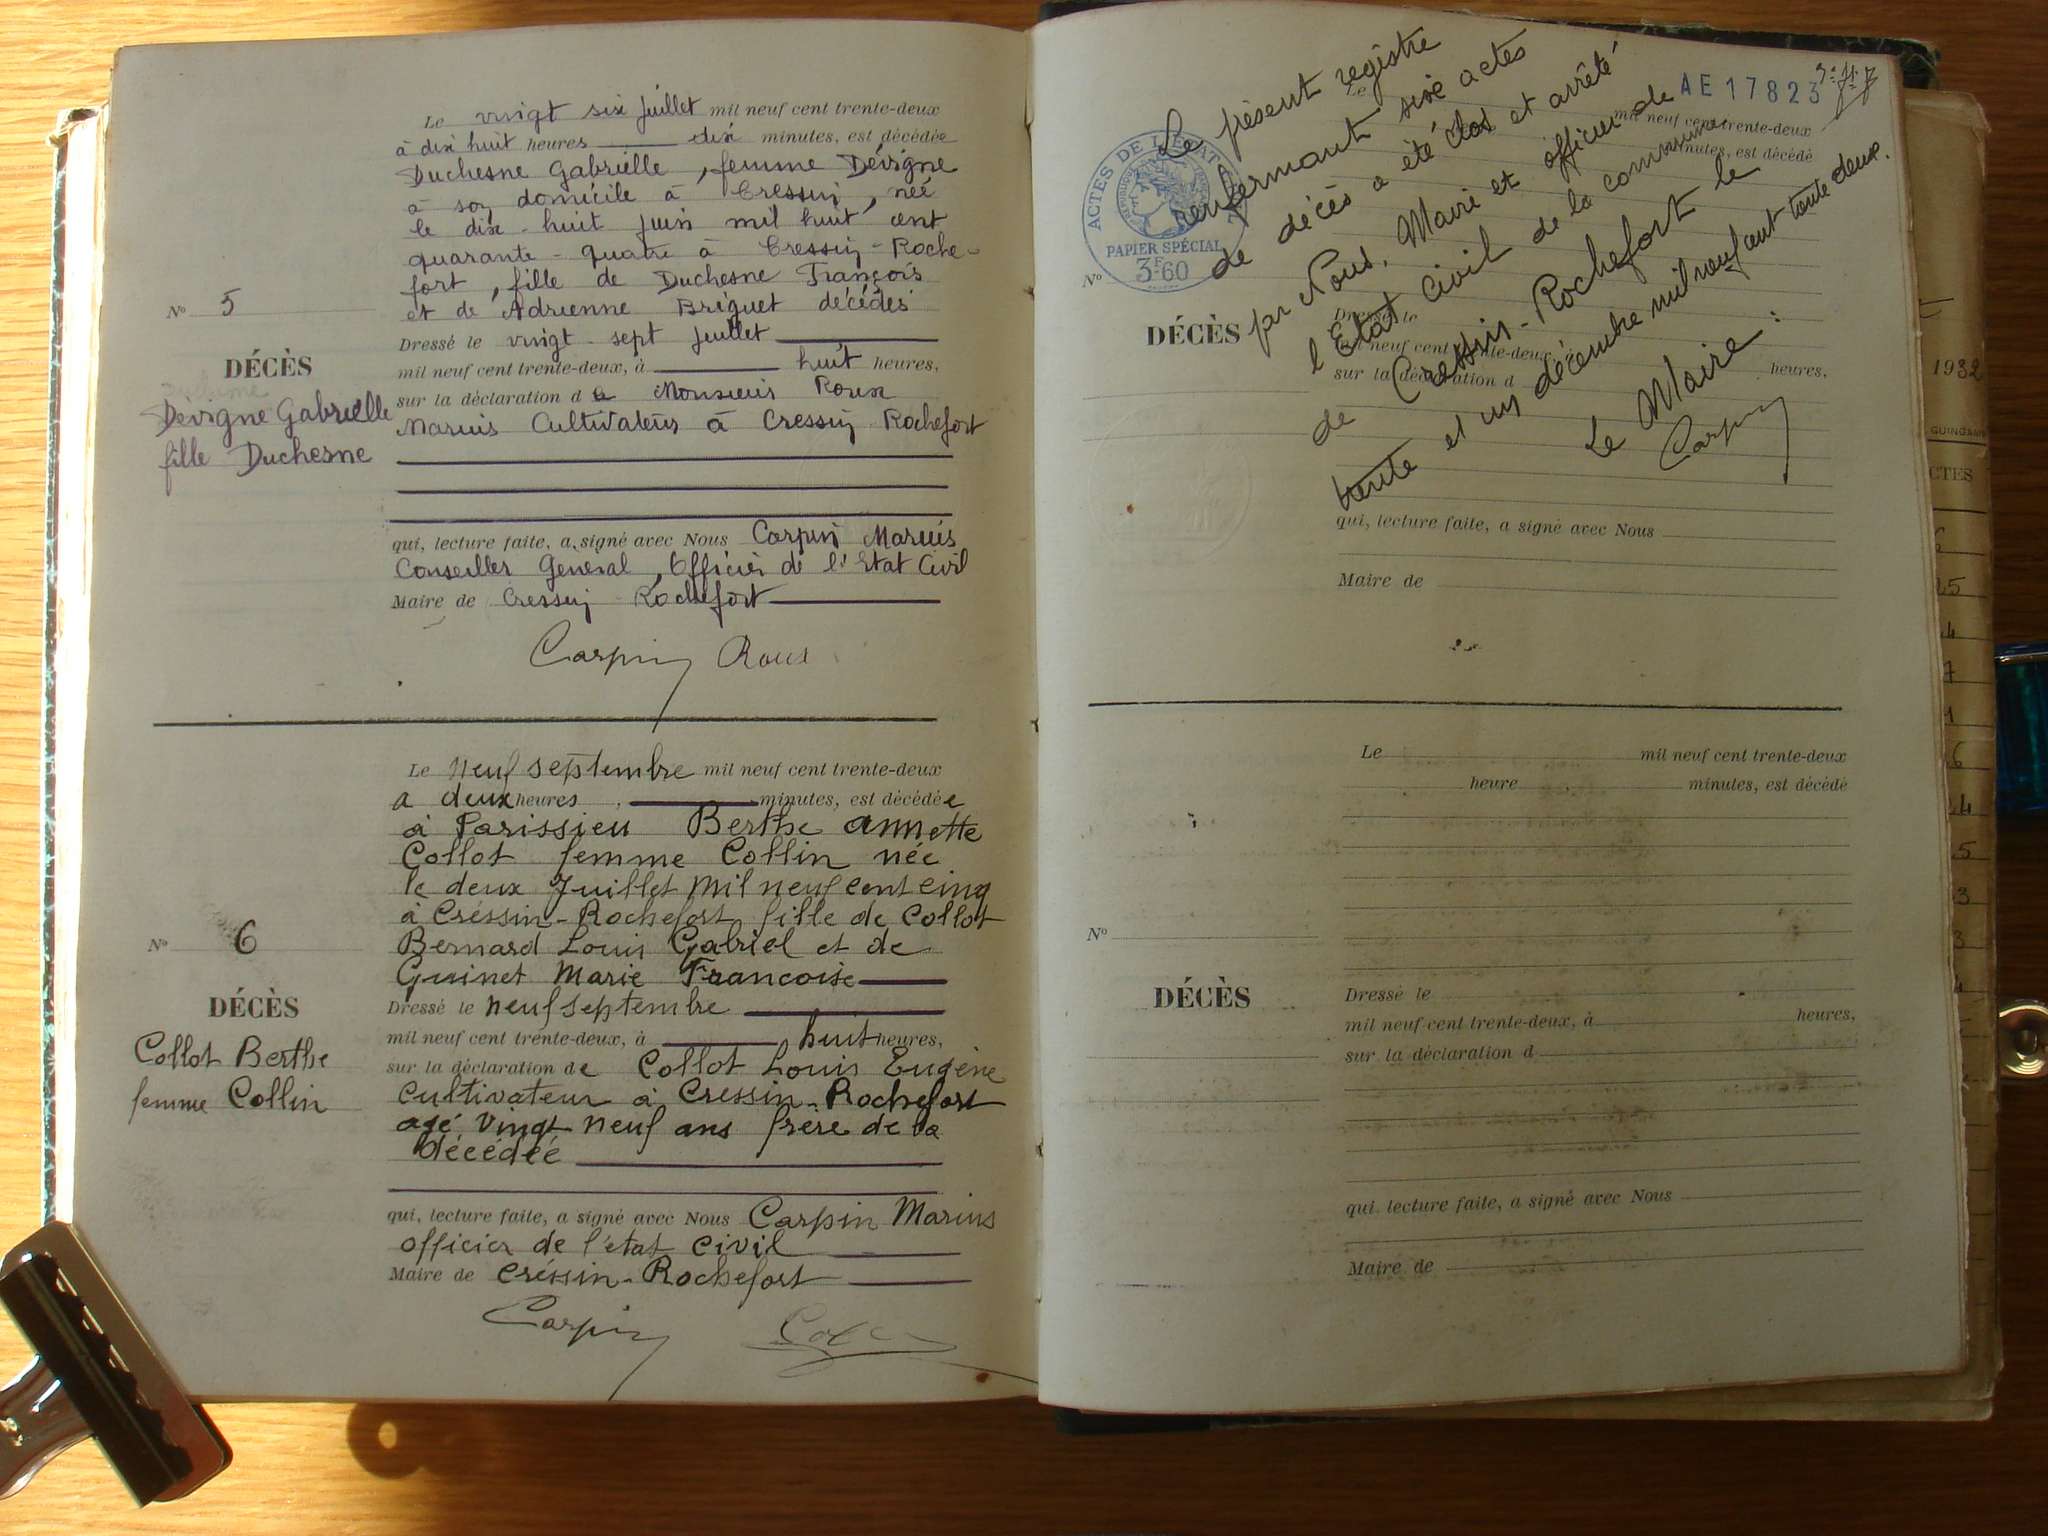 Le vingt six juillet mil neuf cent trente-deux
à dix huit heures dix minutes, est décédée
Duchesne Gabrielle, femme Dévigne
à son domicile à Cressin, née
le dix-huit juin mil huit cent
quarante-quatre à Cressin-Roche-
fort, fille de Duchesne François
et de Adrienne Briguet décédés
Nº 5
Dressé le vingt-sept juillet
DÉCÈS
mil neuf cent trente-deux, à huit heures,
Dévigne Gabrielle
sur la déclaration de Monsieur Roux
fille Duchesne
Marius Cultivateur à Cressin Rochefort
qui, lecture faite, a signé avec Nous Carpin Marius
Conseiller Général, Officier de l'Etat Civil
Maire de Cressin Rochefort
Carpin Roux
Le neuf septembre mil neuf cent trente-deux
a deux heures, minutes, est décédée
à Parissieu Berthe annette
Collot femme Collin née
le deux Juillet mil neuf cent cinq
à Créssin-Rochefort fille de Collot
Nº 6
Bernard Louis Gabriel et de
Guinet Marie Francoise
DÉCÈS
Dressé le neuf septembre
mil neuf cent trente-deux, à huit heures,
Collot Berthe
femme Collin
sur la déclaration de Collot Louis Eugène
cultivateur à Cressin-Rochefort
agé vingt neuf ans frère de la
décédéé
qui, lecture faite, a signé avec Nous Carpin Marius
officier de l'état civil
Maire de Créssin-Rochefort
Carpin
AE 17823
Le présent registre
renfermant six actes
de décès a été clos et arrêté
par Nous, Maire et officier de
l'Etat Civil de la commune
de Cressin-Rochefort le
trente et un décembre mil neuf cent trente deux.
Le Maire:
Carpin
ACTES DE L'ETAT
PAPIER SPÉCIAL
3F.60
Le
mil neuf cent trente-deux
minutes, est décédé
Nº
DÉCÈS
Dressé le
mil neuf cent trente-deux,
sur la déclaration d
heures,
qui, lecture faite, a signé avec Nous
Maire de
Le mil neuf cent trente-deux
heure, minutes, est décédé
Nº
DÉCÈS
Dressé le
mil neuf cent trente-deux, à heures,
sur la déclaration d
qui, lecture faite, a signé avec Nous
Maire de
1932